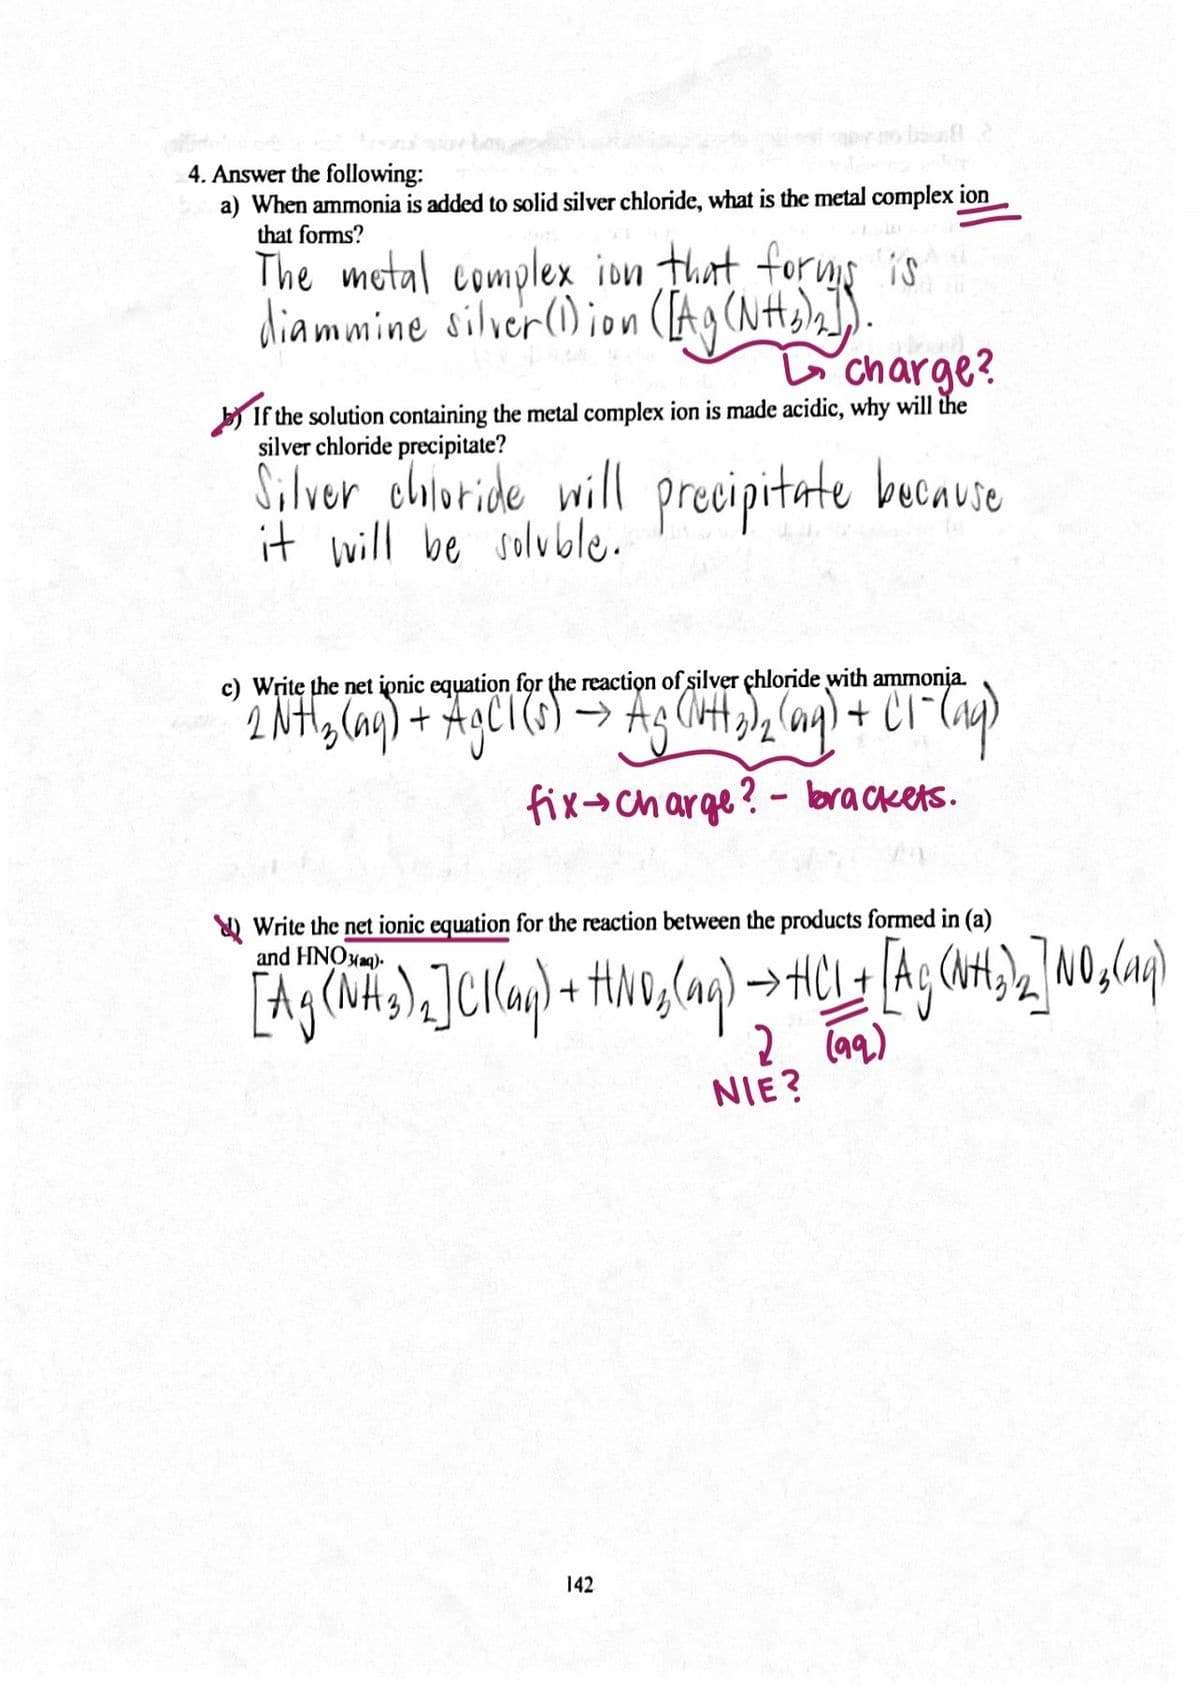 4. Answer the following:
a) When ammonia is added to solid silver chloride, what is the metal complex ion
that forms?
The metal complex ion that forms is
diammine silver(I) ion ([Ag(NH₃)₂]).
↳ charge?
b) If the solution containing the metal complex ion is made acidic, why will the
silver chloride precipitate?
Silver chloride will precipitate because
it will be soluble.
c) Write the net ionic equation for the reaction of silver chloride with ammonia.
2 NH₃(aq) + AgCl(s) → Ag(NH₃)₂(aq) + Cl⁻(aq)
fix→charge? - brackets.
d) Write the net ionic equation for the reaction between the products formed in (a)
and HNO₃(aq).
[Ag(NH₃)₂]Cl(aq) + HNO₃(aq) → HCl + [Ag(NH₃)₂]NO₃(aq)
(aq)
NIE?
142